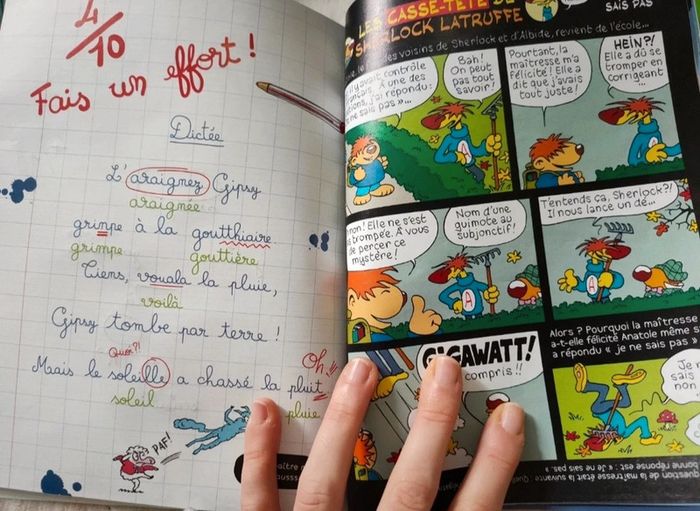 4/10
Fais un effort !
Dictée
L'araignez Gipsy
araignée
grinpe à la goutthiaire
grimpe gouttière
Tiens, vouala la pluie,
voilà
Gipsy tombe par terre !
Quoi?!
Oh!!
Maais le soleille a chassé la pluit
soleil
pluie
PAF!
LES CASSE-TÊTE DE
SHERLOCK LATRUFFE
SAIS PAS
les voisins de Sherlock et d'Albide, revient de l'école...
y avait contrôle
À une des
j'ai répondu :
ne sais pas »...
Bah !
On peut
pas tout
savoir !
Pourtant, la
maîtresse m'a
félicité ! Elle a
dit que j'avais
tout juste !
HEIN?!
Elle a dû se
tromper en
corrigeant
...
non ! Elle ne s'est
trompée. À vous
de percer ce
mystère !
Nom d'une
guimote au
subjonctif !
T'entends ça, Sherlock?!
Il nous lance un dé...
GIGAWATT!
compris !!
Alors ? Pourquoi la maîtresse
a-t-elle félicité Anatole même s'
a répondu « je ne sais pas »
Je n
sais
non
question de la maîtresse était la suivante :
bonne réponse est : « Je ne sais pas. »